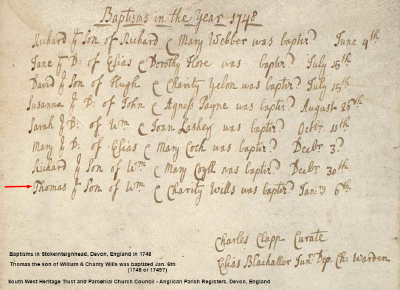 Baptisms in the Year 1748
Richard ye Son of Richard & Mary Webber was baptiz'd June 4th
Jane ye D: of Elias & Dorothy Flore was baptiz'd July 15th
David ye Son of Hugh & Charity Yelon was baptiz'd July 15th
Susanna ye D: of John & Agness Payne was baptiz'd August 26th
Sarah ye D: of Wm & Joan Laskey was baptiz'd Octbr 11th
Mary ye D: of Elias & Mary Cock was baptiz'd Decbr 3?
Richard ye Son of Wm & Mary Coyll was baptiz'd Decbr 30th
Thomas ye Son of Wm & Charity Wills was baptiz'd Jan:y 6th
Charles Clapp Curate
Elias Blachaller Junr Dep Ch: Warden
Baptisms in Stokeinteignhead, Devon, England in 1748
Thomas the son of William & Charity Wills was baptized Jan. 6th
(1748 or 1749?)
South West Heritage Trust and Parochial Church Council - Anglican Parish Registers, Devon, England